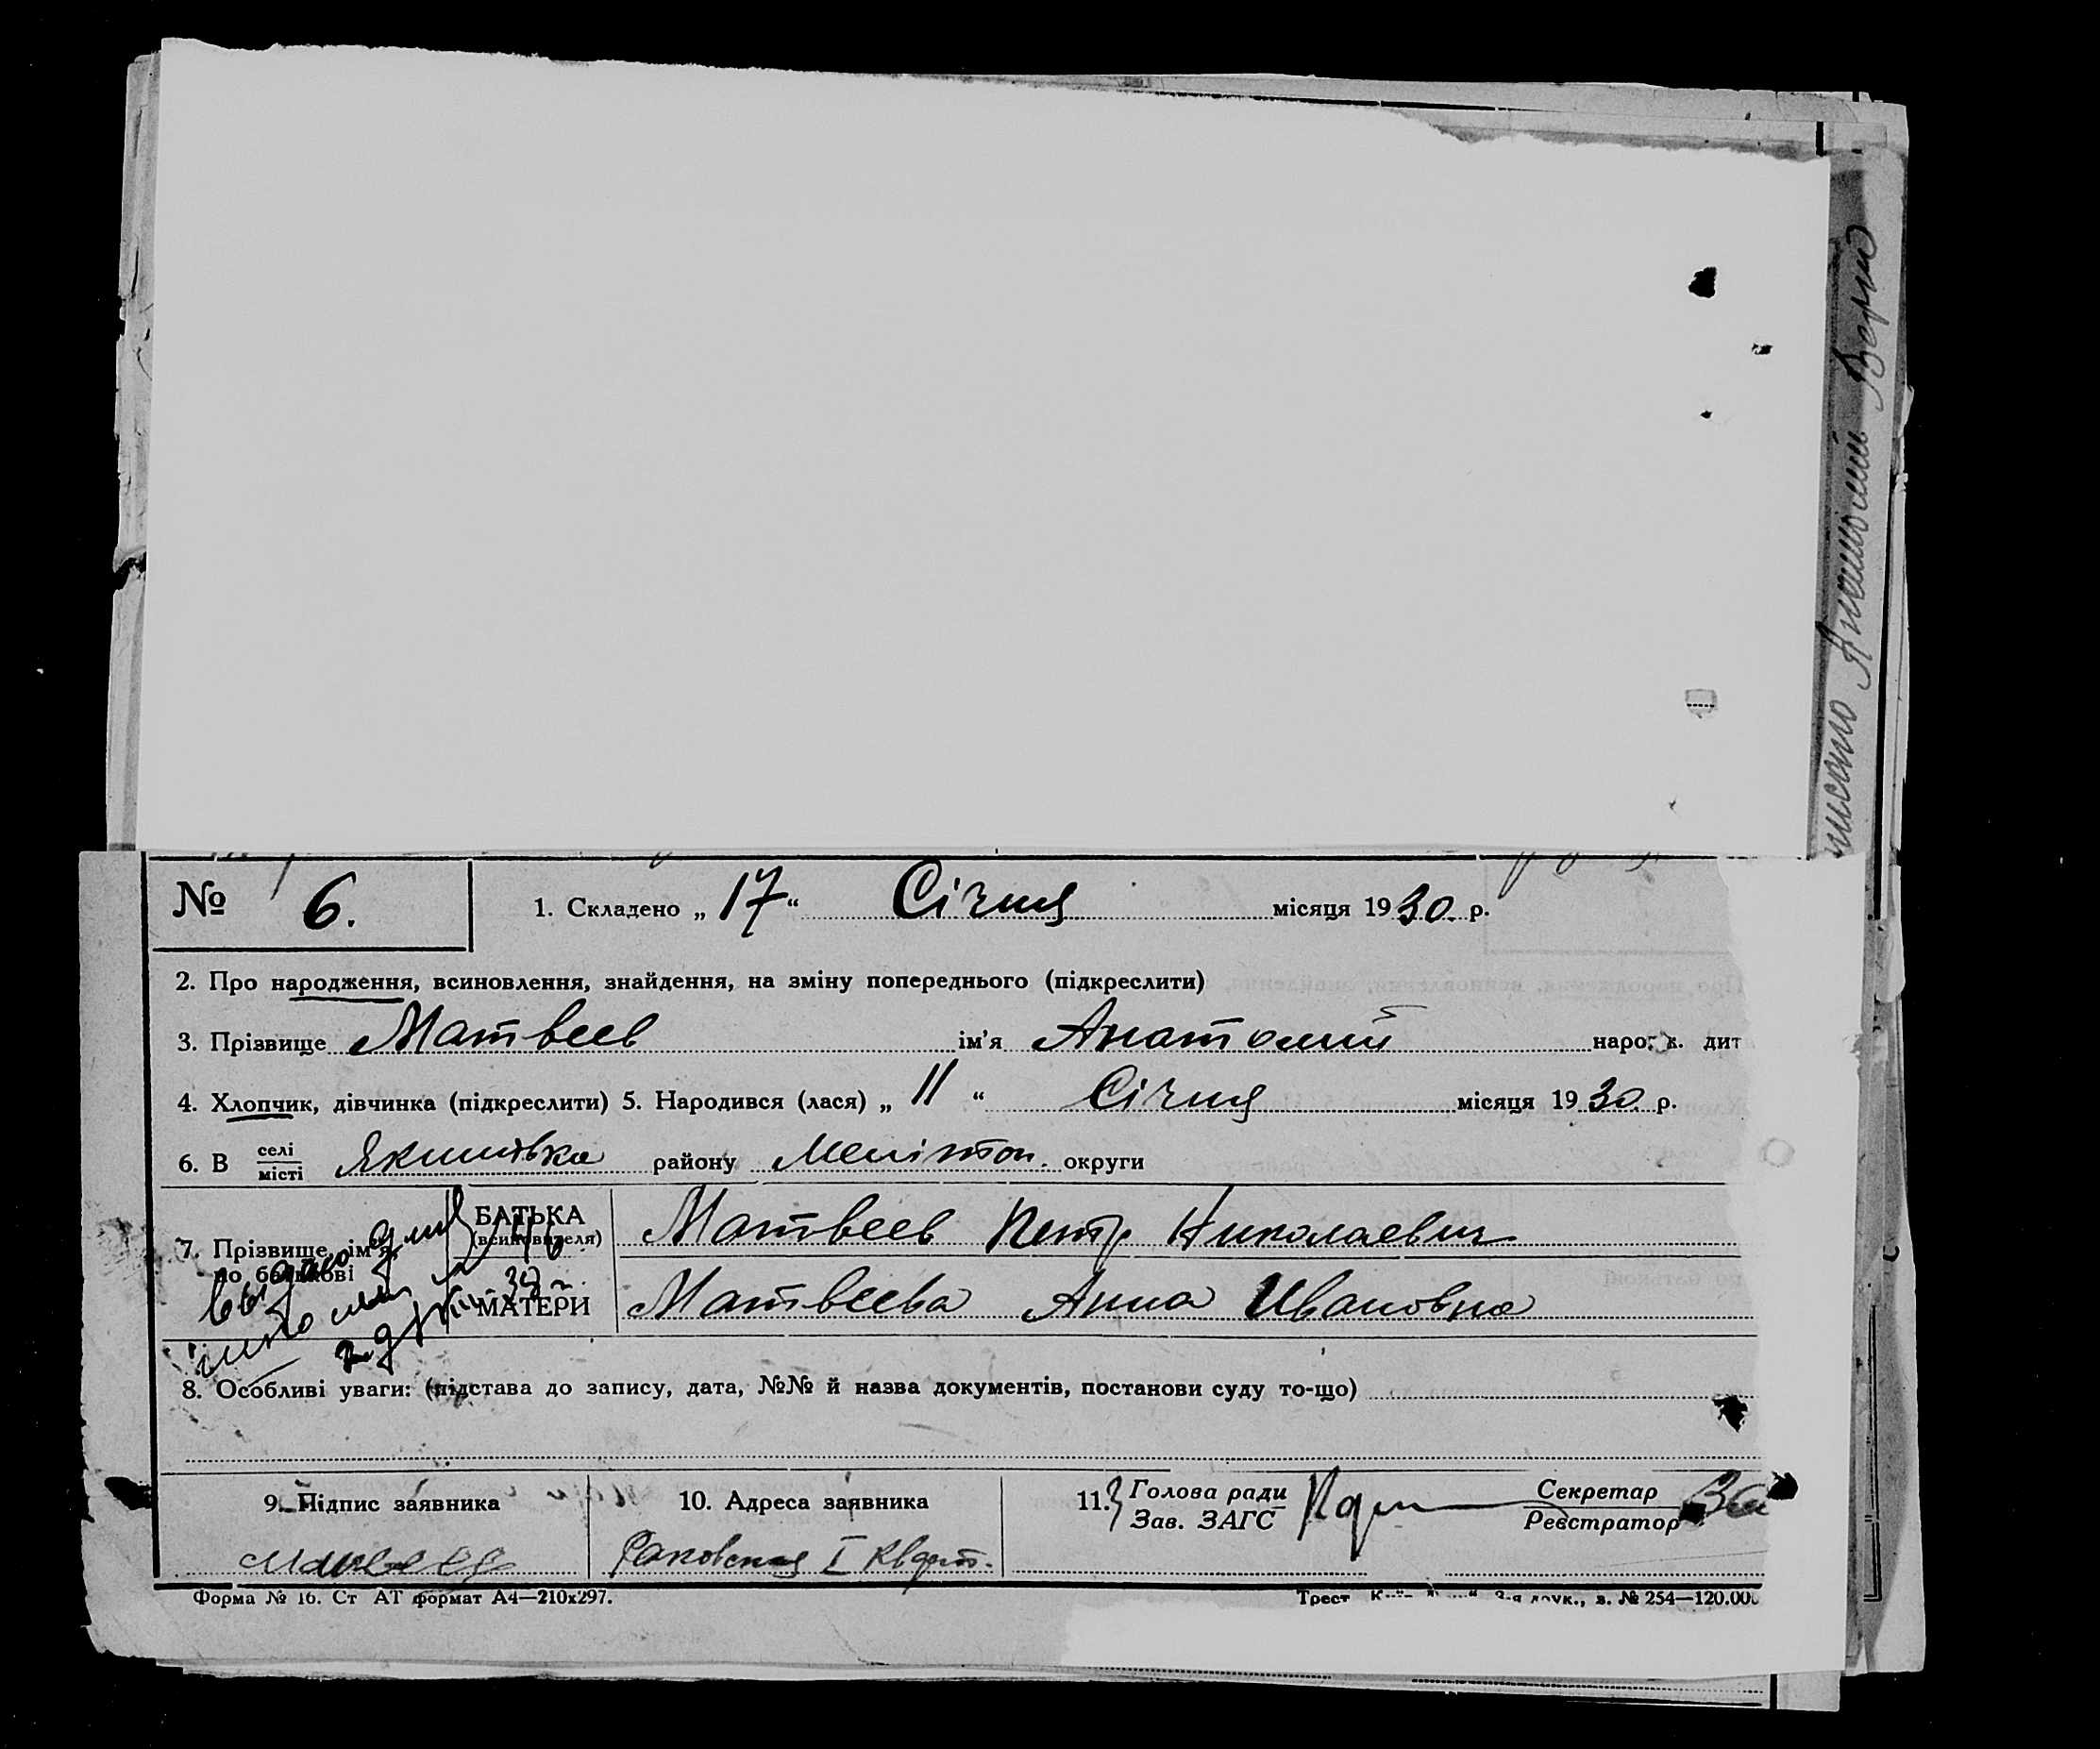 № 6.
1. Складено „ 17 “ Січня місяця 1930. р.
2. Про народження, всиновлення, знайдення, на зміну попереднього (підкреслити)
3. Прізвище Матвеев ім'я Анатолий дит
4. Хлопчик, дівчинка (підкреслити) 5. Народився (лася) „ 11 “ Січня місяця 1930. р.
6. В селі місті Якимівка району Мелітоп. округи
7. Прізвище, ім'я по батькові
БАТЬКА (всиновителя) Матвеев Петр Николаевич
МАТЕРИ Матвеева Анна Ивановна
выдано для
школы
8. Особливі уваги: (підстава до запису, дата, №№ й назва документів, постанови суду то-що)
9. Підпис заявника
Матвеев
10. Адреса заявника
Раковская I Кварт.
11. Голова ради
Зав. ЗАГС
Секретар
Реєстратор
Форма № 16. Ст АТ формат А4—210х297.
Трест друк., з. № 254—120.00
Анатолий Вери